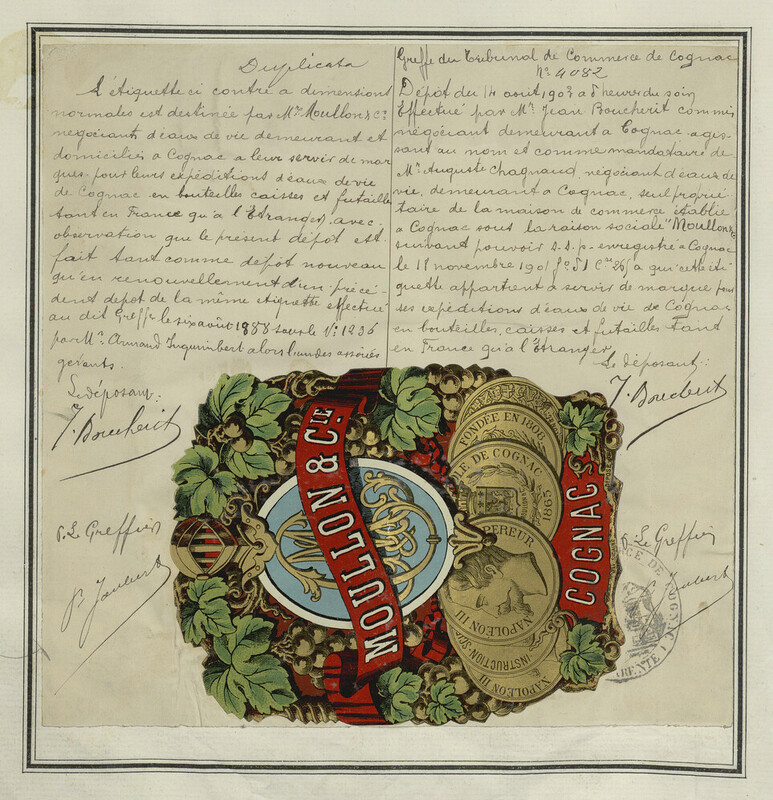 Duplicata
L'étiquette ci contre a dimensions
normales est destinée par Mrs Moullon & Cie
négociants d'eaux de vie demeurant et
domiciliés a Cognac a leur servir de mar
que pour leurs expéditions d'eaux de vie
de Cognac en bouteilles caisses et futailles
tant en France qu'a l'Etranger, avec
observation que le présent dépôt est
fait tant comme dépôt nouveau
qu'en renouvellement d'un précé-
dent depot de la même etiquette effectué
au dit Greffe le six août 1888 sous le No 1236
par Mr Armand Inquimbert alors l'un des associés
gérants.
Le déposant:
J. Boucherit
p. Le Greffier
P. Joubert
Greffe du Tribunal de Commerce de Cognac
No 4082
Dépôt du 14 août 1903 a 5 heures du soir
Effectué par Mr Jean Boucherit commis
négociant demeurant a Cognac agis-
sant au nom et comme mandataire de
Mr Auguste Chagnaud, négociant d'eaux de
vie, demeurant a Cognac, seul proprié
taire de la maison de commerce établie
a Cognac sous la raison sociale "Moullon & Cie
suivant pouvoir s.s.p. enregistré a Cognac
le 18 novembre 1901 fo 51 Cse 26 a qui cette éti
quette appartient a servir de marque pour
ses expéditions d'eaux de vie de Cognac
en bouteilles, caisses et futailles tant
en France qu'a l'Etranger
Le déposant:
J. Boucherit
p. Le Greffier
P. Joubert
MOULLON & CIE
FONDÉE EN 1808
DE COGNAC
1865
EMPEREUR
NAPOLEON III
NAPOLEON III
INSTRUCTION
COGNAC
DE COGNAC